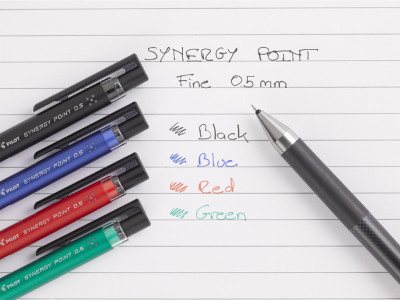 SYNERGY POINT
Fine 0.5mm
Black
Blue
Red
Green
PILOT SYNERGY POINT 0.5
PILOT SYNERGY POINT 0.5
PILOT SYNERGY POINT 0.5
PILOT SYNERGY POINT 0.5